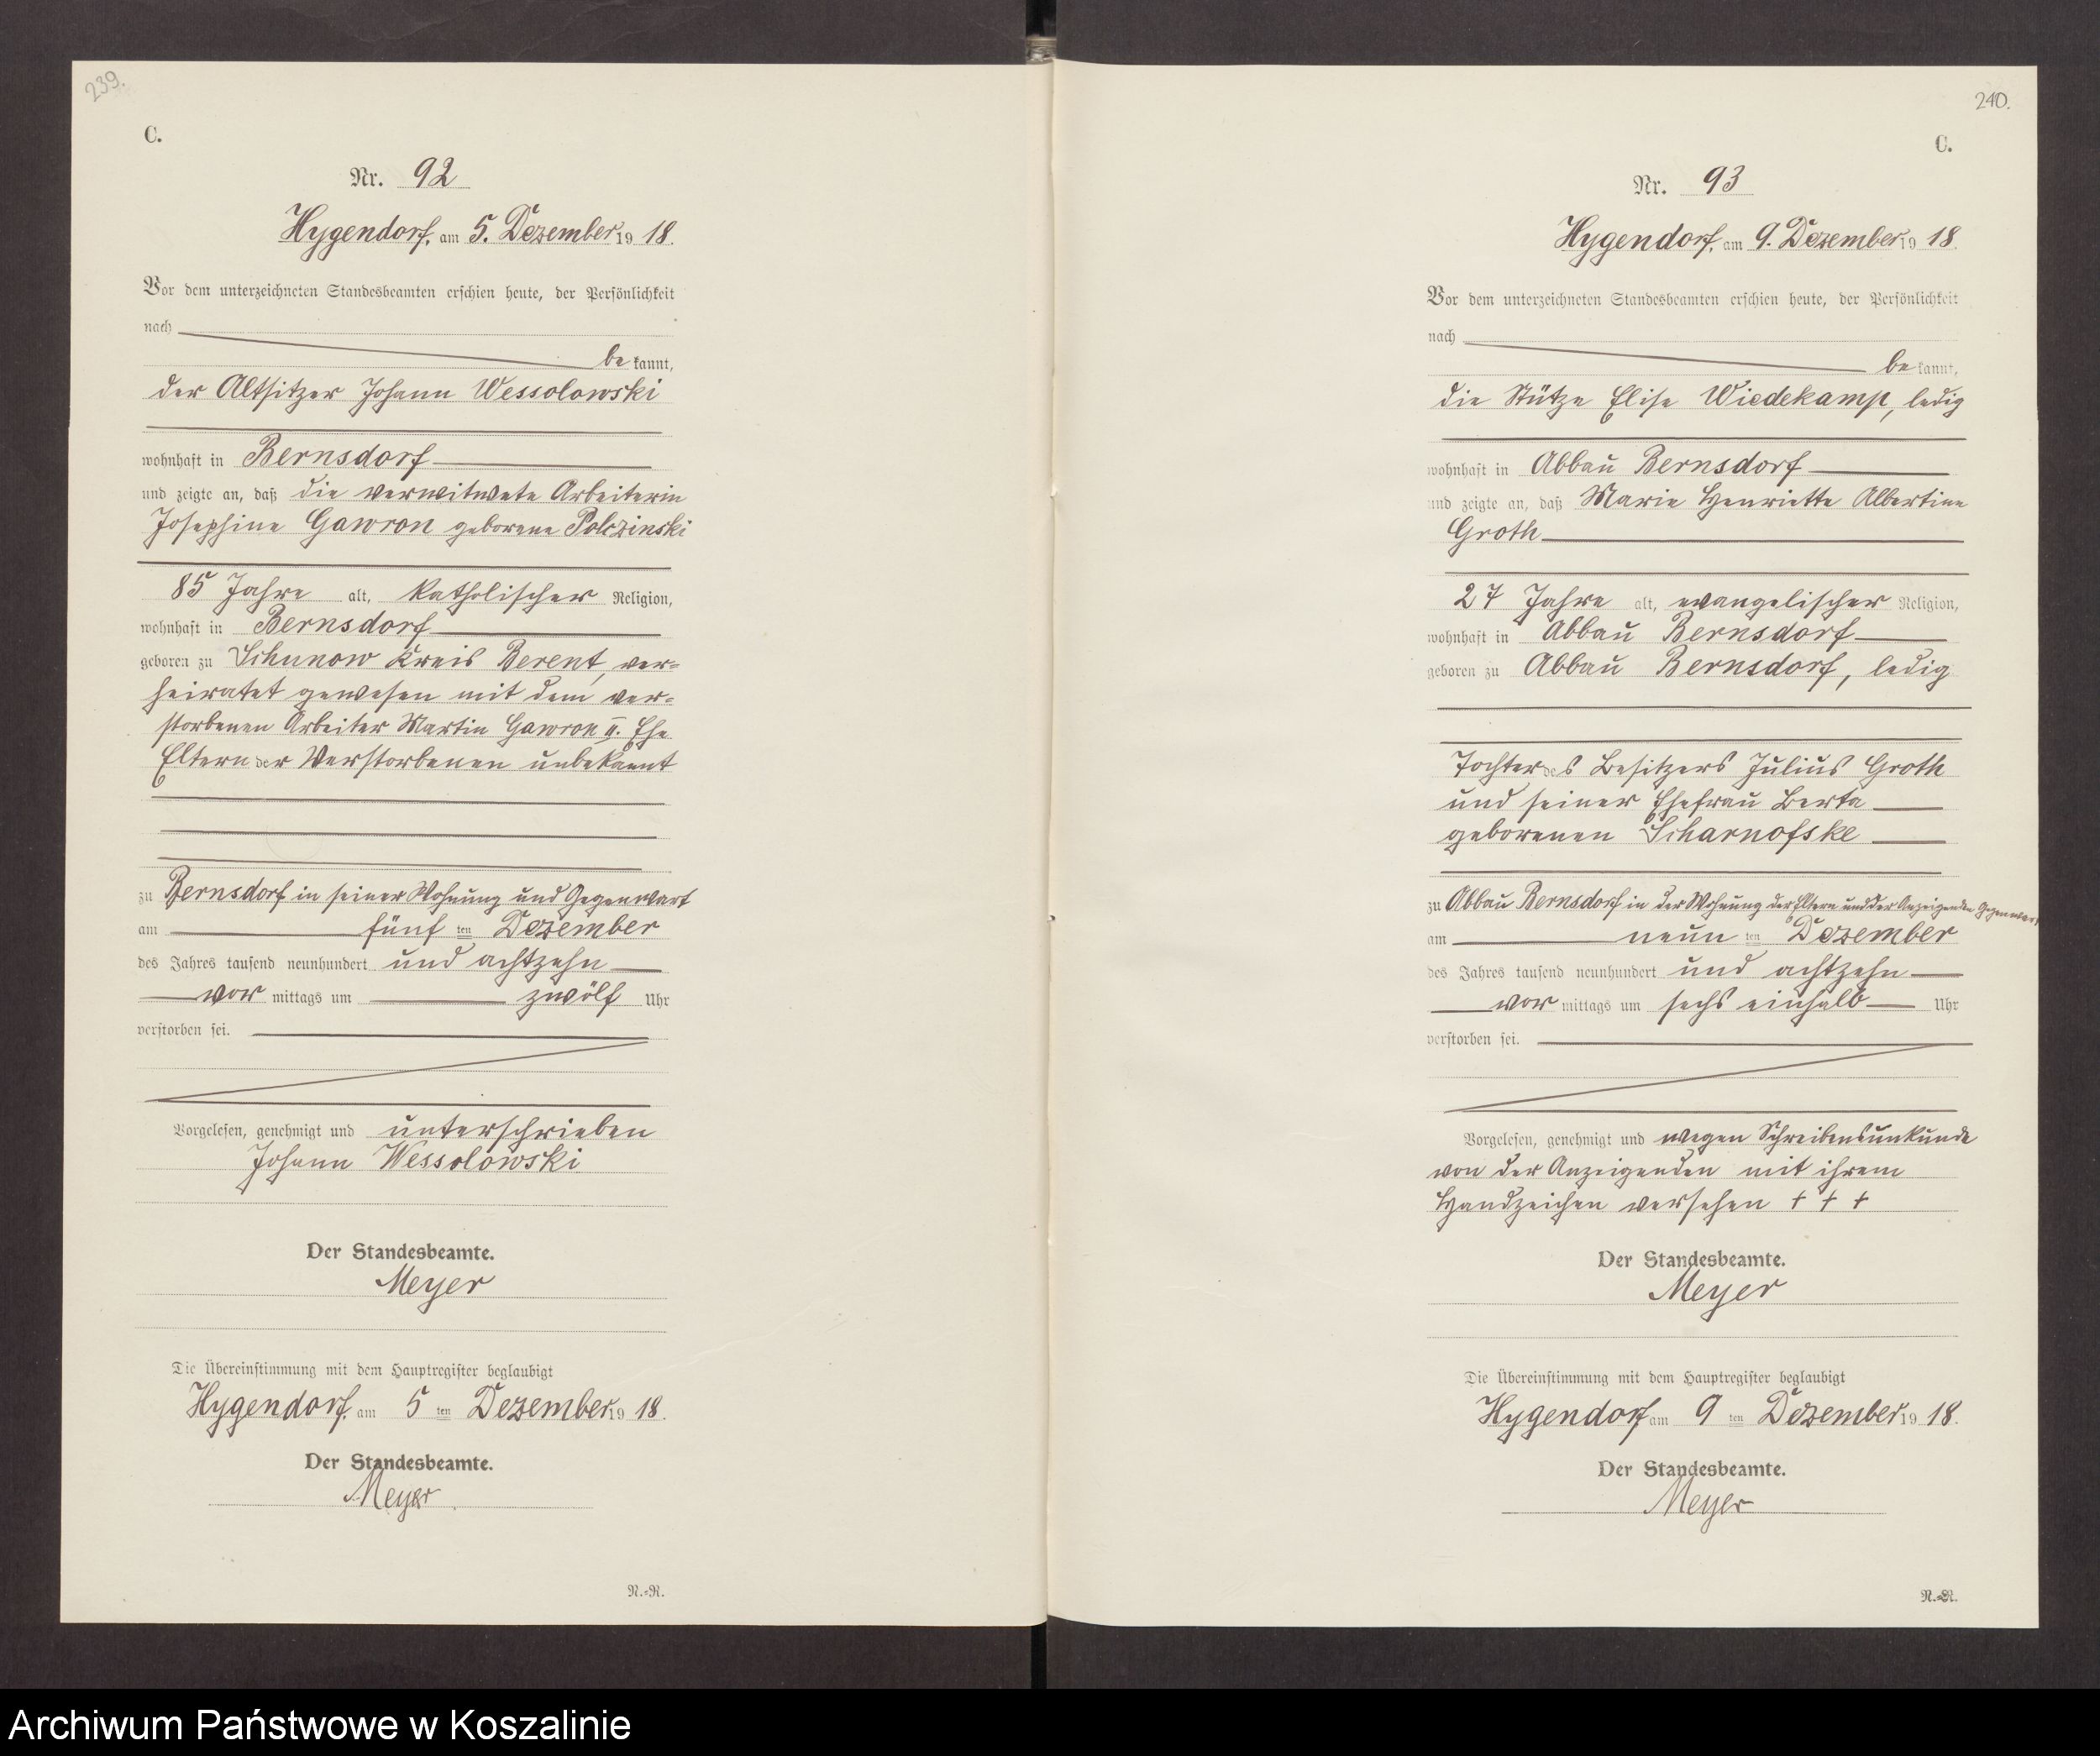 239.
C.
Nr. 92
Hygendorf, am 5. Dezember 1918.
Vor dem unterzeichneten Standesbeamten erschien heute, der Persönlichkeit
nach
bekannt,
der Altsitzer Johann Wessolowski
wohnhaft in Bernsdorf
und zeigte an, daß die verwitwete Arbeiterin
Josephine Gawron geborene Polczinski
85 Jahre alt, katholischer Religion,
wohnhaft in Bernsdorf
geboren zu Schunow Kreis Berent, ver=
heiratet gewesen mit dem ver=
storbenen Arbeiter Martin Gawron II. Ehe
Eltern der Verstorbenen unbekannt
zu Bernsdorf in seiner Wohnung und Gegenwart
am fünf ten Dezember
des Jahres tausend neunhundert und achtzehn
vor mittags um zwölf Uhr
verstorben sei.
Vorgelesen, genehmigt und unterschrieben
Johann Wessolowski
Der Standesbeamte.
Meyer
Die Übereinstimmung mit dem Hauptregister beglaubigt
Hygendorf, am 5 ten Dezember 1918.
Der Standesbeamte.
Meyer
N.=R.
240.
C.
Nr. 93
Hygendorf, am 9. Dezember 1918.
Vor dem unterzeichneten Standesbeamten erschien heute, der Persönlichkeit
nach
bekannt,
die Stütze Elise Wiedekamp, ledig
wohnhaft in Abbau Bernsdorf
und zeigte an, daß Marie Henriette Albertine
Groth
27 Jahre alt, evangelischer Religion,
wohnhaft in Abbau Bernsdorf
geboren zu Abbau Bernsdorf, ledig
Tochter des Besitzers Julius Groth
und seiner Ehefrau Berta
geborenen Scharnofske
zu Abbau Bernsdorf in der Wohnung der Eltern und der Anzeigenden Gegenwart
am neun ten Dezember
des Jahres tausend neunhundert und achtzehn
vor mittags um sechs einhalb Uhr
verstorben sei.
Vorgelesen, genehmigt und wegen Schreibensunkunde
von der Anzeigenden mit ihrem
Handzeichen versehen + + +
Der Standesbeamte.
Meyer
Die Übereinstimmung mit dem Hauptregister beglaubigt
Hygendorf am 9 ten Dezember 1918.
Der Standesbeamte.
Meyer
N.=R.
Archiwum Państwowe w Koszalinie